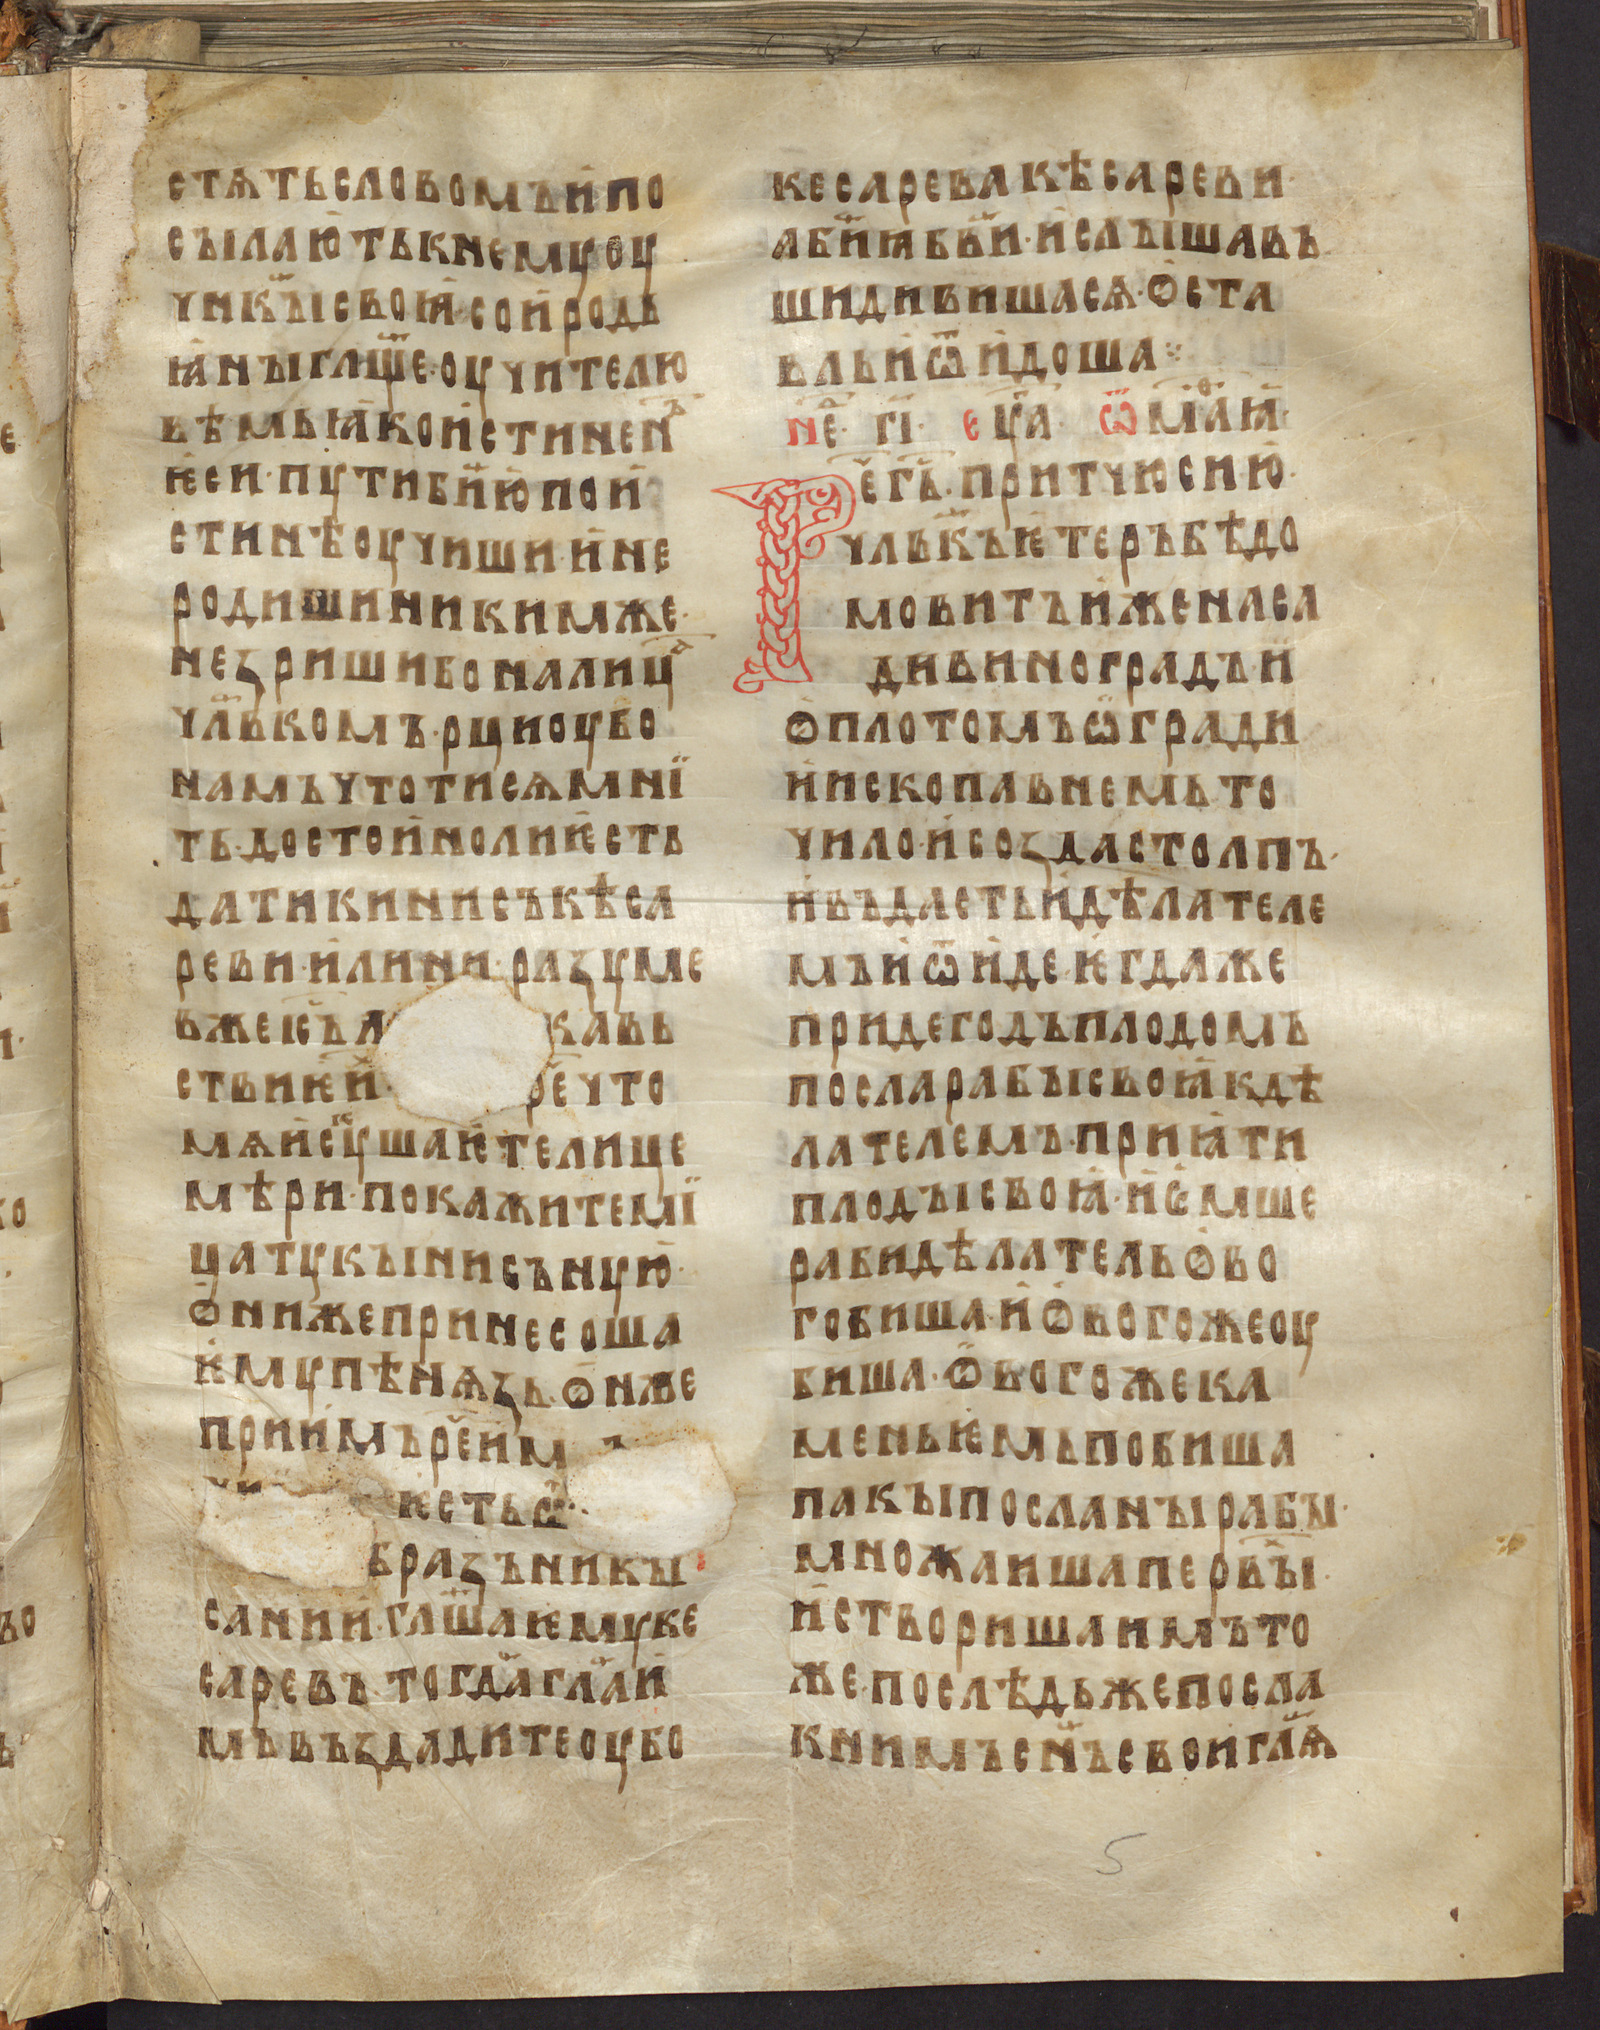 стѧтьсловомъипо
съілаютькнемꙋоу
чнкъісвоꙗ·соиродь
ꙗнъіглще·оучителю
вѣмьꙗкоистинен
ѥси·пꙋтибиюпои
стинѣоучиши·ине
родишиникимже·
неꙁришибоналица
члвкомъ·рциоубо
намъчтотисѧмнї
ть·достоинолиѥсть
датикинисъкѣса
реви·илини·раꙁꙋме
ствиѥи· рече что
мѧискꙋшаѥтелице
мѣри·покажитемї
цатꙋкъінисънꙋю·
ѻнижепринесоша
ѥмꙋпѣнѧꙁь·ѻнже
приимъреим
ѥстьѡ
браꙁъникъі
сании·глшаѥмꙋке
саревъ·тогдаглаи
мъвъꙁдадитеоубо
кесаревакѣсареви·
абиꙗбви·ислъішавъ
шидивишасѧ·ѻста
вльиѿидоша
не· гі· еуа ѿмаѳꙗ·
Регь·притчюсию·
члвкъѥтеръбѣдо
мовитъиженаса
дивиноградъи
ѻплотомъѡгради
иископавнемьто
чило·исоꙁдастолпъ·
ивъдастьидѣлателе
мъиѿиде·ѥгдаже
придегодъплодомъ
посларабъісвоꙗкдѣ
лателемъ·приꙗти
плодъісвоꙗ·иѥмше
рабидѣлательѻво
гобиша·иѻвогожеоу
биша·ѻвогожека
меньѥмьпобиша
пакъіпосланъірабъі·
множаишапервъі·
истворишаимъто
же·послѣдьжепосла
книмъснъсвоиглѧ
5